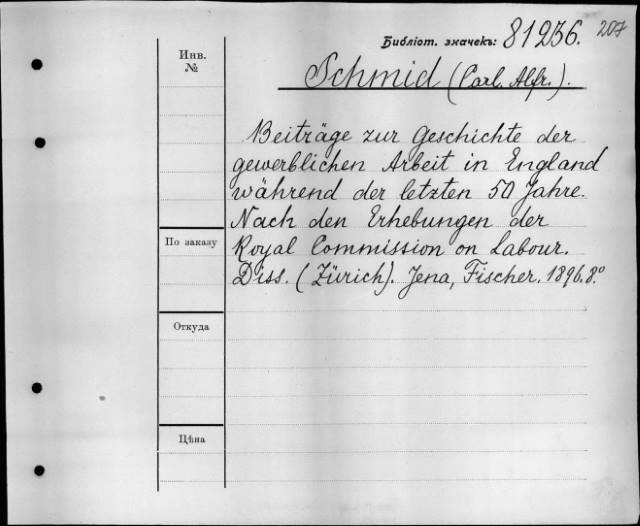 207
Библіот. значекъ: 81236.
Инв.
№
Schmid (Carl. Alfr.).
Beiträge zur Geschichte der
gewerblichen Arbeit in England
während der letzten 50 Jahre.
Nach den Erhebungen der
По заказу
Royal Commission on Labour.
Diss. (Zürich). Jena, Fischer. 1896. 8.°
Откуда
Цѣна